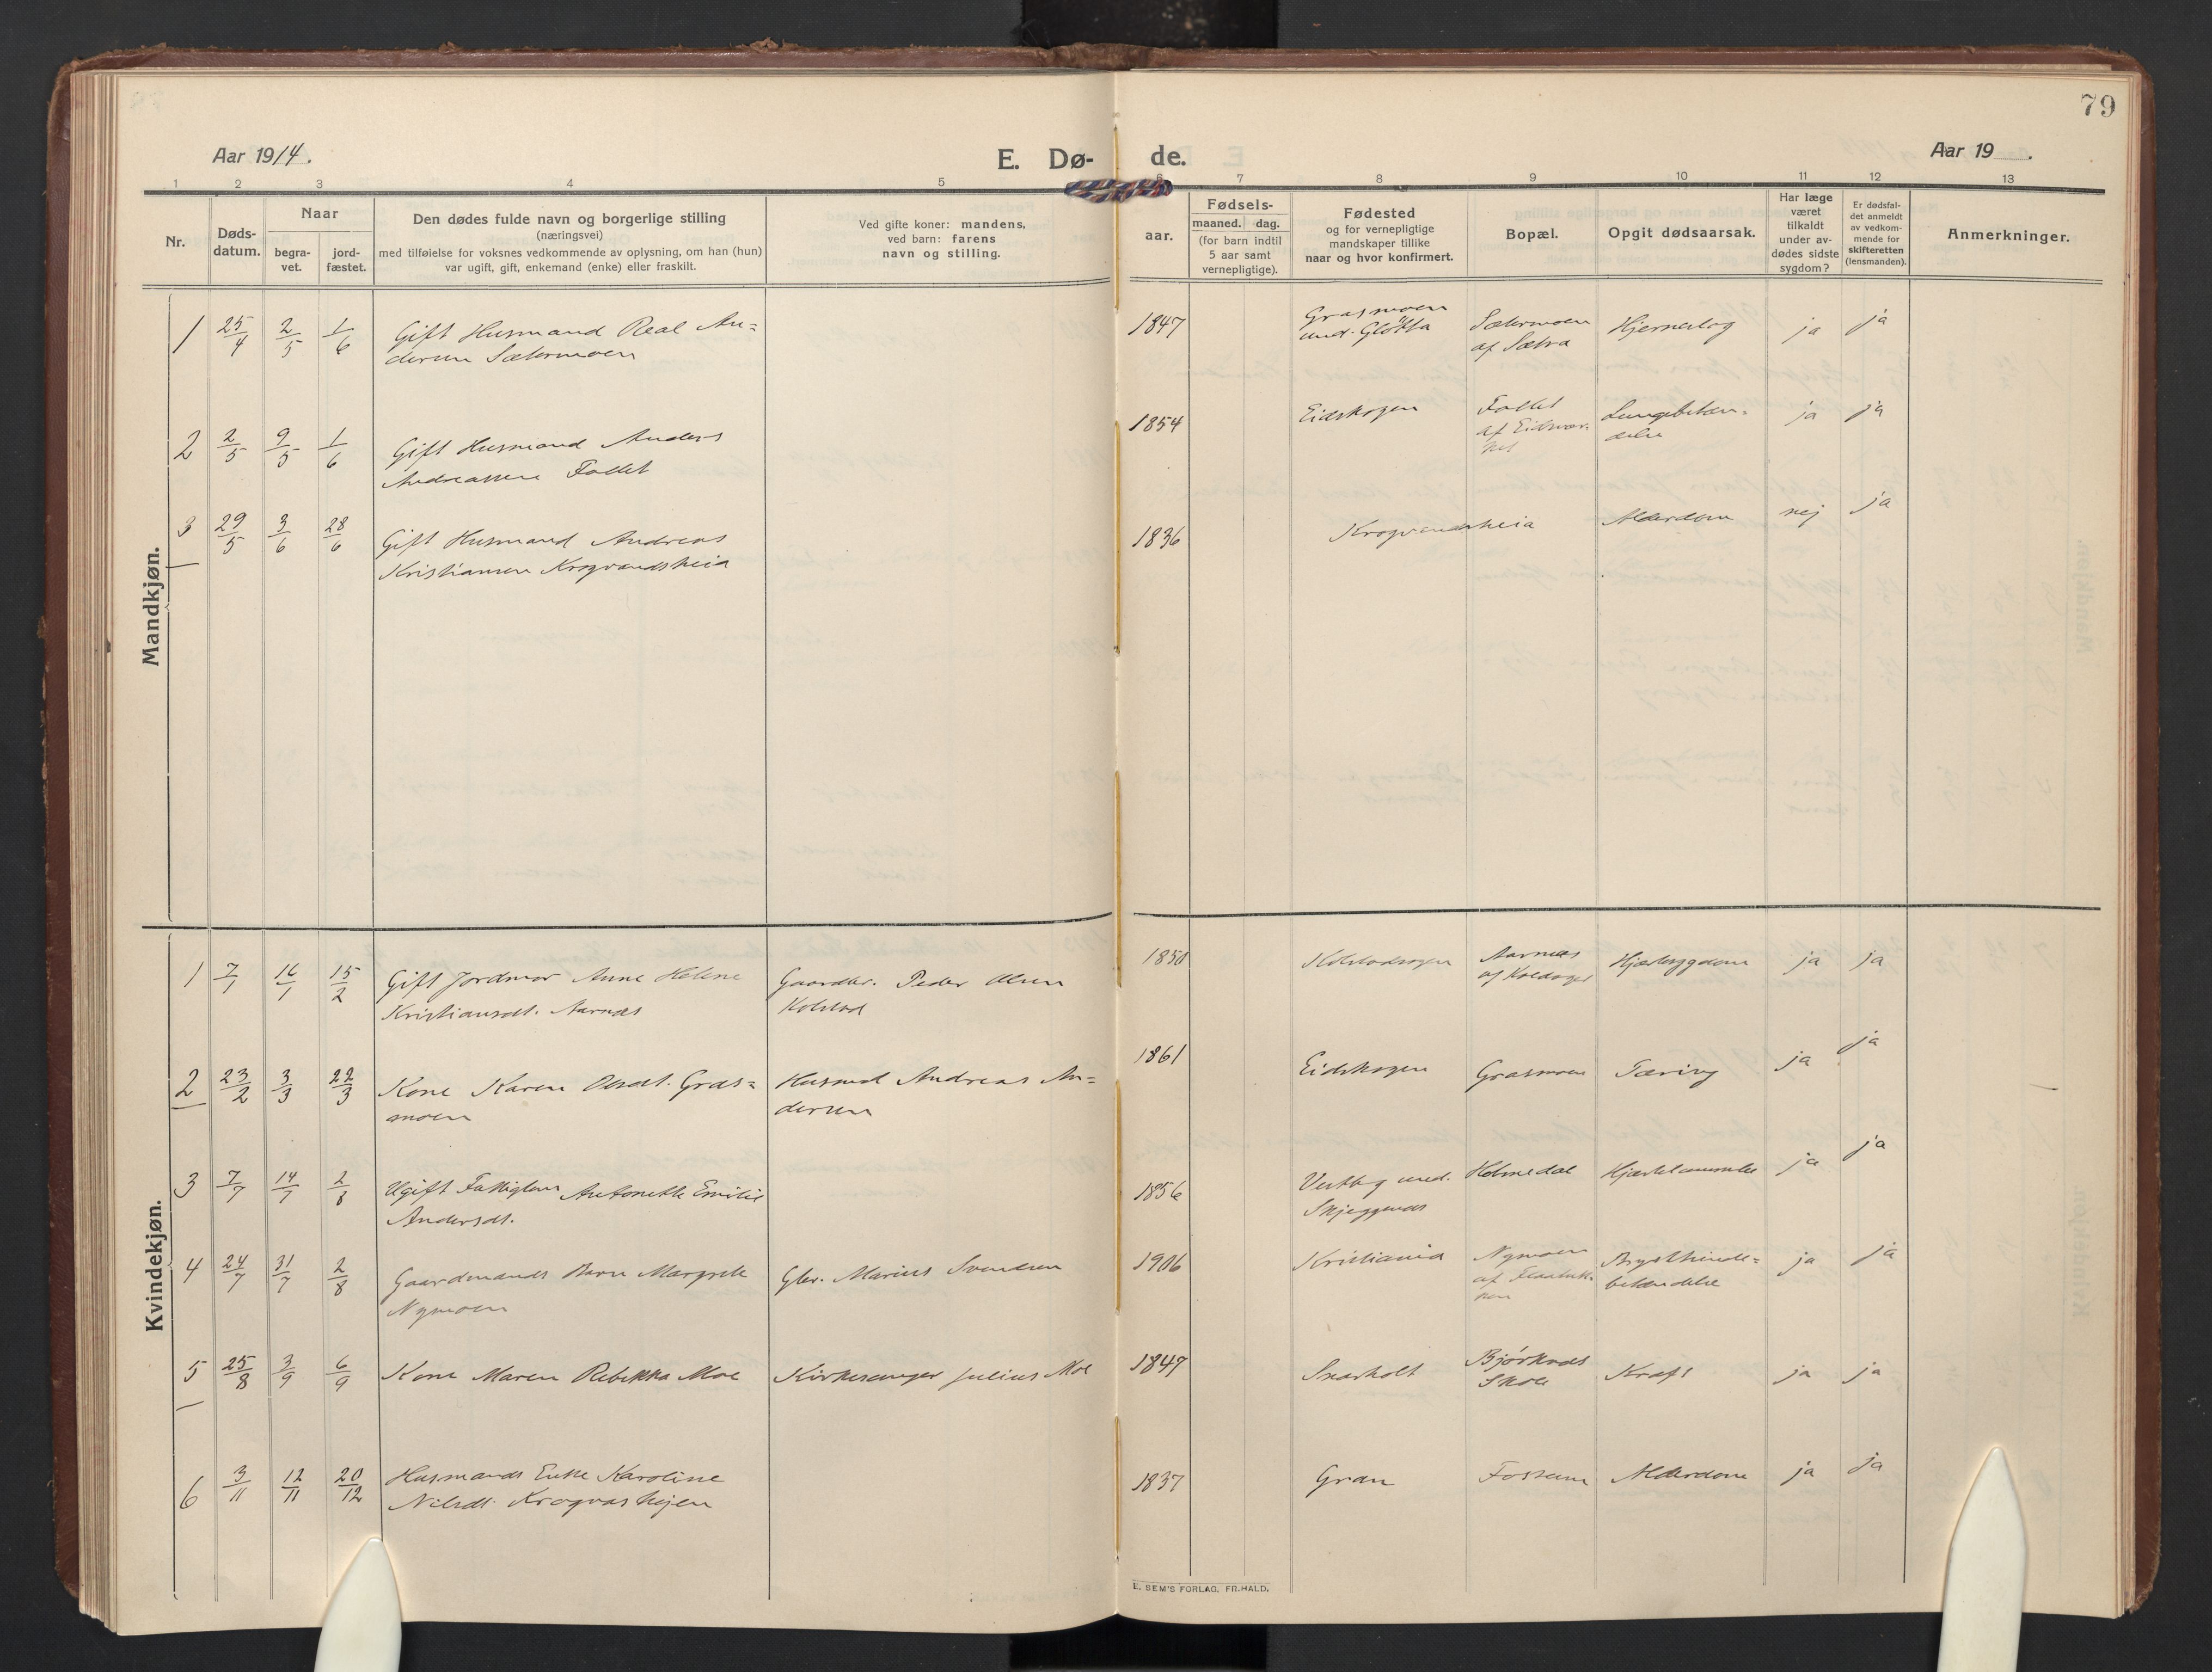 79
Aar 1914.
E. Dø- de.
Aar 19 .
1 2 3 4 5 6 7 8 9 10 11 12 13
Nr.
Døds-
datum.
Naar
begra-
vet.
jord-
fæstet.
Den dødes fulde navn og borgerlige stilling
(næringsvei)
med tilføielse for voksnes vedkommende av oplysning, om han (hun)
var ugift, gift, enkemand (enke) eller fraskilt.
Ved gifte koner: mandens,
ved barn: farens
navn og stilling.
aar.
Fødsels-
maaned. dag.
(for barn indtil
5 aar samt
vernepligtige).
Fødested
og for vernepligtige
mandskaper tillike
naar og hvor konfirmert.
Bopæl.
Opgit dødsaarsak.
Har læge
været
tilkaldt
under av-
dødes sidste
sygdom?
Er dødsfal-
det anmeldt
av vedkom-
mende for
skifteretten
(lensmanden).
Anmerkninger.
Mandkjøn.
1 25/4 2/5 1/6 Gift Husmand Real An=
dersen Sætermoen
1847 Grasmoen
und. Gløtta
Sætermoen
af Sætra
Hjerneslag ja ja
2 2/5 9/5 1/6 Gift Husmand Anders
Andreassen Fallet
1854 Eidskogen Fallet
af
Lungebetæn-
delse
ja ja
3 29/5 3/6 28/6 Gift Husmand Andreas
Kristiansen Krogvandsheia
1836 Krogvandsheia Alderdom nej ja
Kvindekjøn.
1 7/1 16/1 15/2 Gift Jordmor Anne Helene
Kristiansdt. Aarnæs
Gaardbr. Peder Olsen
Kolstad
1850 Kolstadskogen Aarnæs
af
ja ja
2 23/2 3/3 22/3 Kone Karen Olsdt. Gras=
moen
Husmd Andreas An=
dersen
1861 Eidskogen Grasmoen Tæring ja ja
3 7/7 14/7 2/8 Ugift Fattiglem Antonette Emilie
Andersdt.
1856 Vestby und.
Skjeggenæs
Holmedal Hjertelammelse ja ja
4 24/7 31/7 2/8 Gaardmands Barn Margrete
Nymoen
Gbr. Marius Svendsen
1906 Kristiania Nymoen
af
Brysthinde=
betændelse
ja ja
5 25/8 3/9 6/9 Kone Maren Rebekka Moe Kirkesanger Julius Moe
1847 Snarholt Bjørknæs
Skole
Kræft ja ja
6 3/11 12/11 20/12 Husmands Enke Karoline
Nilsdt. Krogvasheien
1837 Gran Fossum Alderdom ja ja
E. SEM'S FORLAG, FR.HALD.